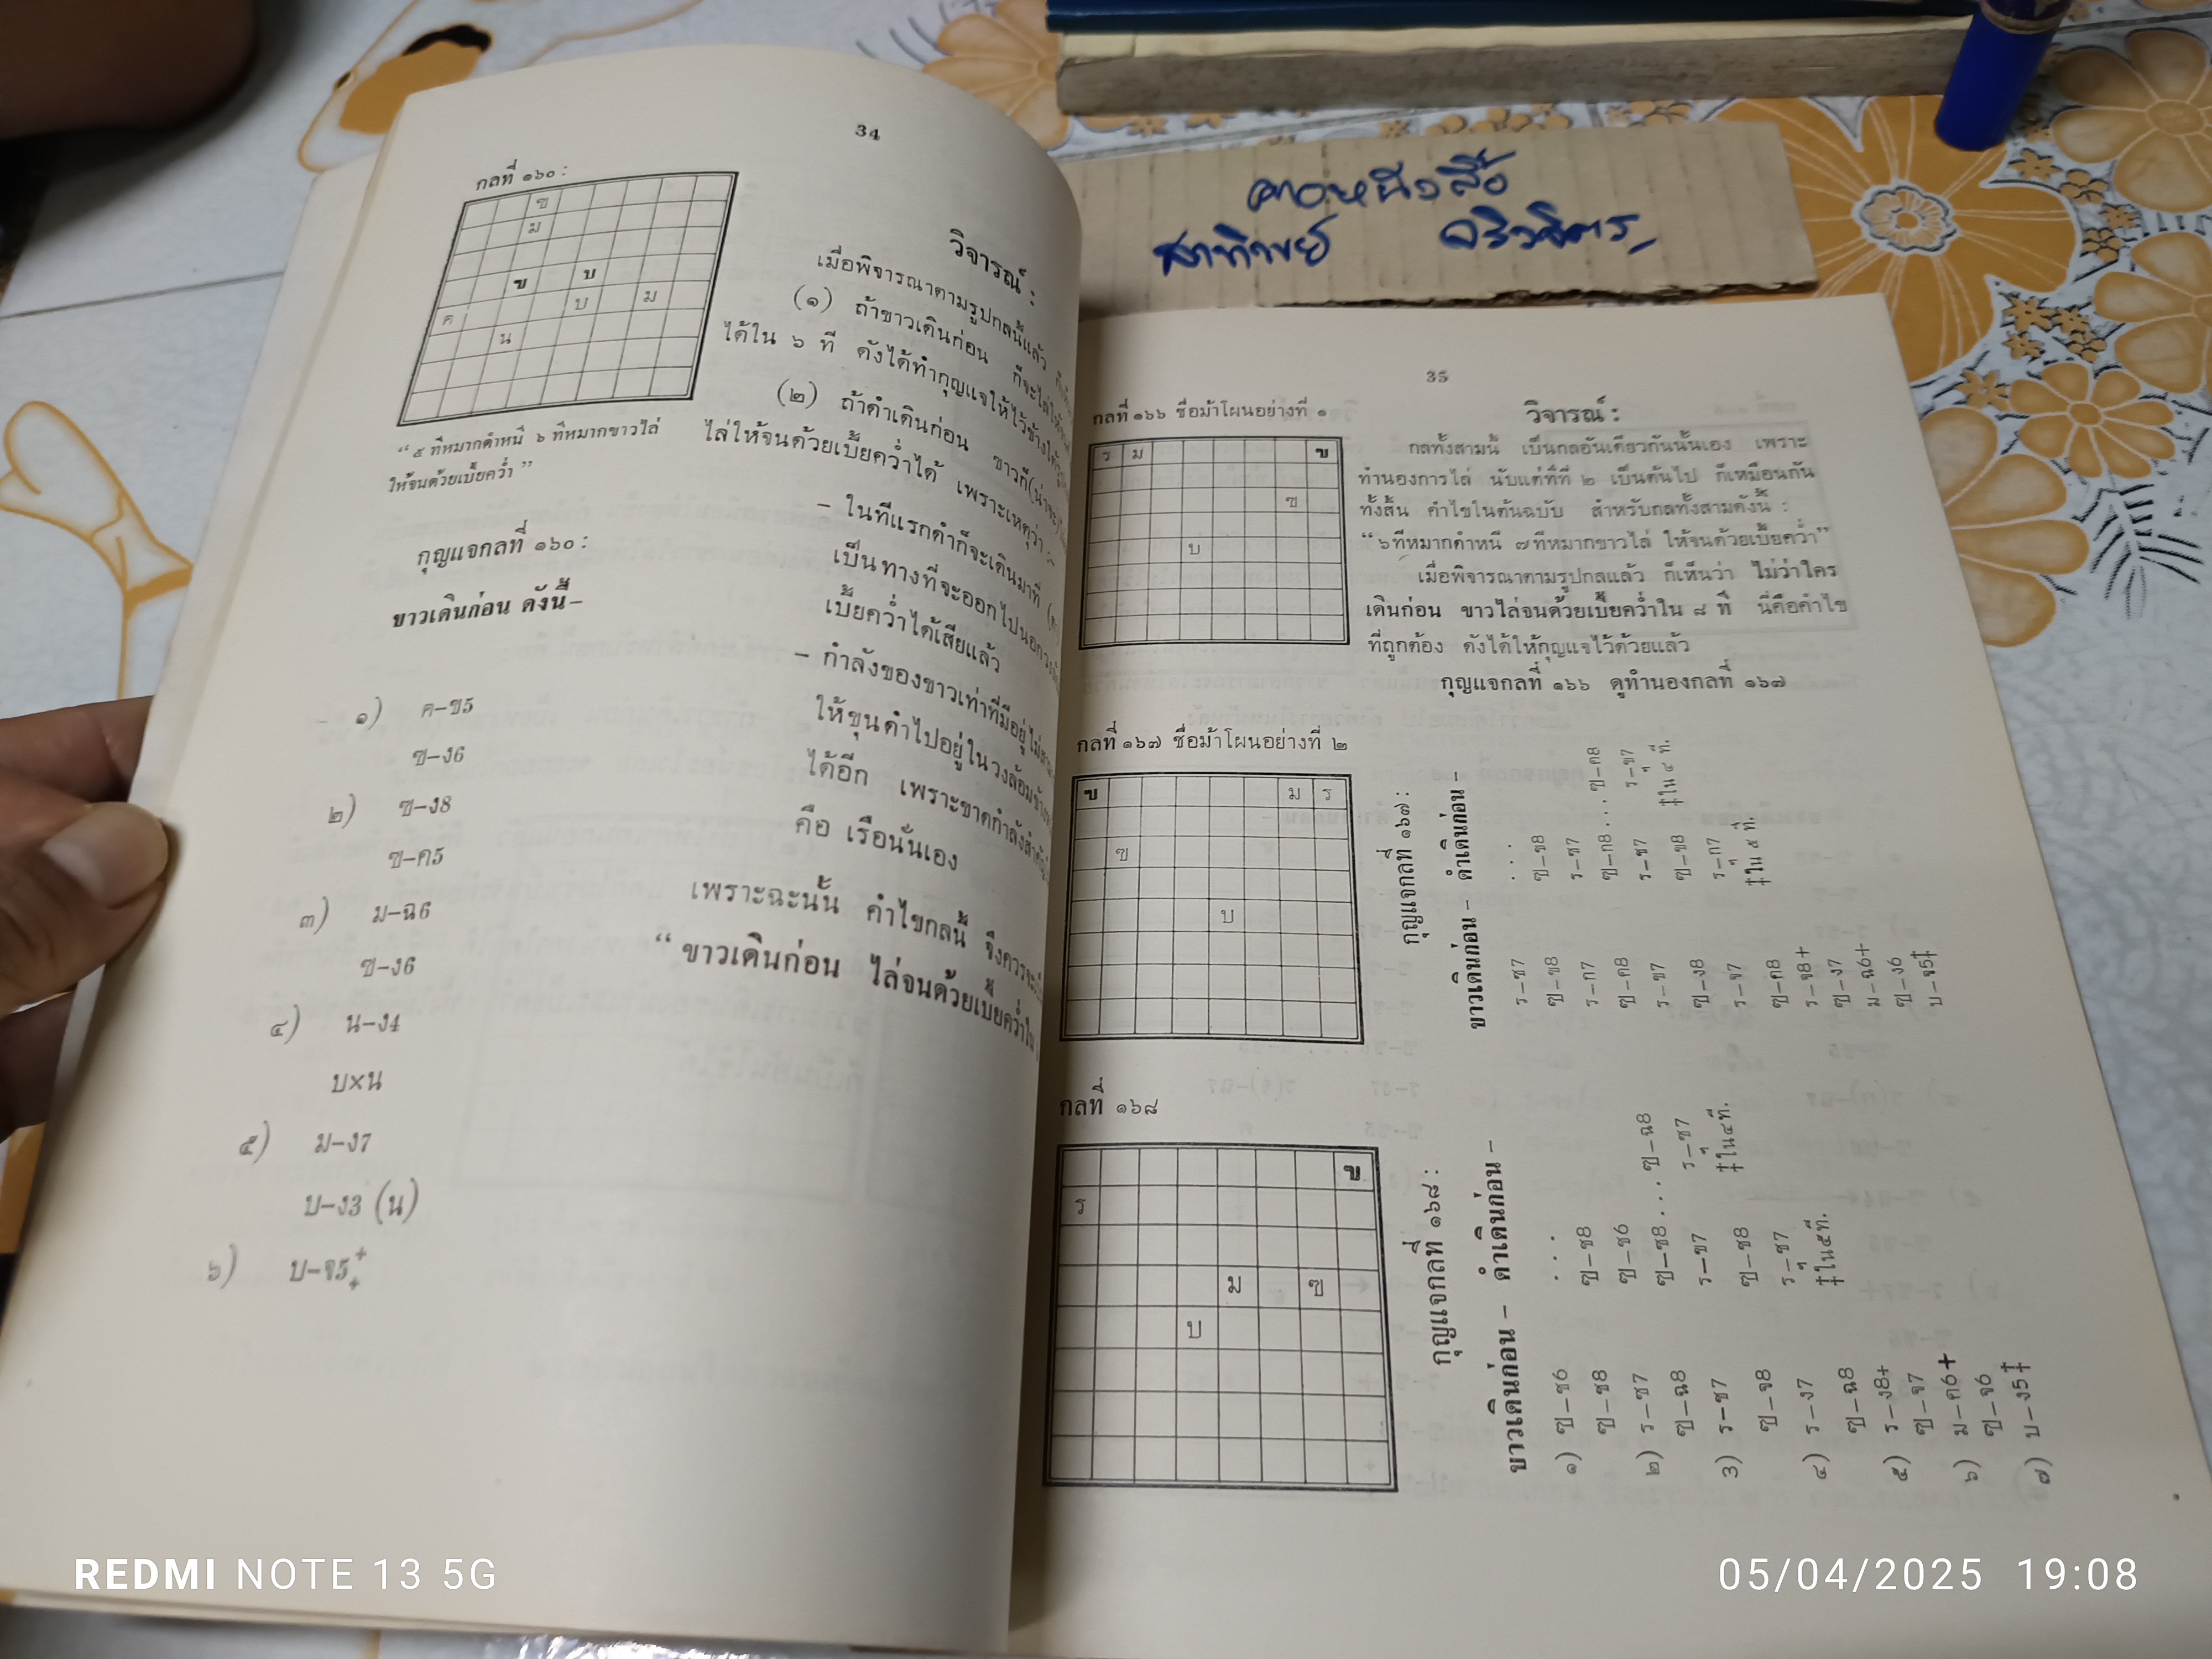 34
กลที่ ๑๖๐ :
ฃ
ม
ข บ
บ ม
ค
น
“ ๕ ทีหมากดำหนี ๖ ทีหมากขาวไล่
ให้จนด้วยเบี้ยคว่ำ ”
กุญแจกลที่ ๑๖๐ :
ขาวเดินก่อน ดังนี้–
๑) ค–ข5
ฃ–ง6
๒) ฃ–ง8
ฃ–ค5
๓) ม–ฉ6
ฃ–ง6
๔) น–ง4
บ×น
๕) ม–ง7
บ–ง3 (น)
๖) บ–จ5‡
วิจารณ์ :
เมื่อพิจารณาตามรูปกลนี้แล้ว
(๑) ถ้าขาวเดินก่อน ก็จะไล่ให้จน
ได้ใน ๖ ที ดังได้ทำกุญแจให้ไว้ข้างใต้รูป
(๒) ถ้าดำเดินก่อน ขาวก็(น่าจะ)
ไล่ให้จนด้วยเบี้ยคว่ำได้ เพราะเหตุว่า :
– ในทีแรกดำก็จะเดินมาที่
เป็นทางที่จะออกไปนอก
เบี้ยคว่ำได้เสียแล้ว
– กำลังของขาวเท่าที่มีอยู่
ให้ขุนดำไปอยู่ในวงล้อม
ได้อีก เพราะขาดกำลังสำคัญ
คือ เรือนั่นเอง
เพราะฉะนั้น คำไขกลนี้ จึงควร
“ ขาวเดินก่อน ไล่จนด้วยเบี้ยคว่ำใน
คาอหนังสือ
35
กลที่ ๑๖๖ ชื่อม้าโผนอย่างที่ ๑
ร ม ข
ฃ
บ
วิจารณ์ :
กลทั้งสามนี้ เป็นกลอันเดียวกันนั้นเอง เพราะ
ทำนองการไล่ นับแต่ที่ที ๒ เป็นต้นไป ก็เหมือนกัน
ทั้งสิ้น คำไขในต้นฉบับ สำหรับกลทั้งสามดังนี้ :
“๖ทีหมากดำหนี ๗ทีหมากขาวไล่ ให้จนด้วยเบี้ยคว่ำ”
เมื่อพิจารณาตามรูปกลแล้ว ก็เห็นว่า ไม่ว่าใคร
เดินก่อน ขาวไล่จนด้วยเบี้ยคว่ำใน ๘ ที นี่คือคำไข
ที่ถูกต้อง ดังได้ให้กุญแจไว้ด้วยแล้ว
กุญแจกลที่ ๑๖๖ ดูทำนองกลที่ ๑๖๗
กลที่ ๑๖๗ ชื่อม้าโผนอย่างที่ ๒
ข ม ร
ฃ
บ
กุญแจกลที่ ๑๖๗ :
ขาวเดินก่อน – ดำเดินก่อน –
ร–ช7 . . .
ฃ–ข8 ฃ–ข8
ร–ก7 ร–ช7
ฃ–ค8 ฃ–ก8 . . . ฃ–ค8
ร–ข7 ร–ข7 ร–ข7
ฃ–ง8 ฃ–ข8 ‡ใน ๔ ที.
ร–จ7 ร–ก7
ฃ–ค8 ‡ใน ๕ ที.
ร–จ8+
ฃ–ง7
ม–ฉ6+
ฃ–ง6
บ–จ5‡
กลที่ ๑๖๘
ข
ร
ม ฃ
บ
กุญแจกลที่ ๑๖๘ :
ขาวเดินก่อน – ดำเดินก่อน –
๑) ฃ–ช6 . . .
ฃ–ช8 ฃ–ช8
๒) ร–ช7 ฃ–ช6
ฃ–ฉ8 ฃ–ซ8 . . . ฃ–ฉ8
3) ร–ช7 ร–ข7 ร–ช7
ฃ–จ8 ฃ–ช8 ‡ใน๔ที.
๔) ร–ง7 ร–ช7
ฃ–ฉ8 ‡ใน๕ที.
๕) ร–ง8+
ฃ–จ7
๖) ม–ค6+
ฃ–จ6
๗) บ–ง5‡
REDMI NOTE 13 5G
05/04/2025 19:08